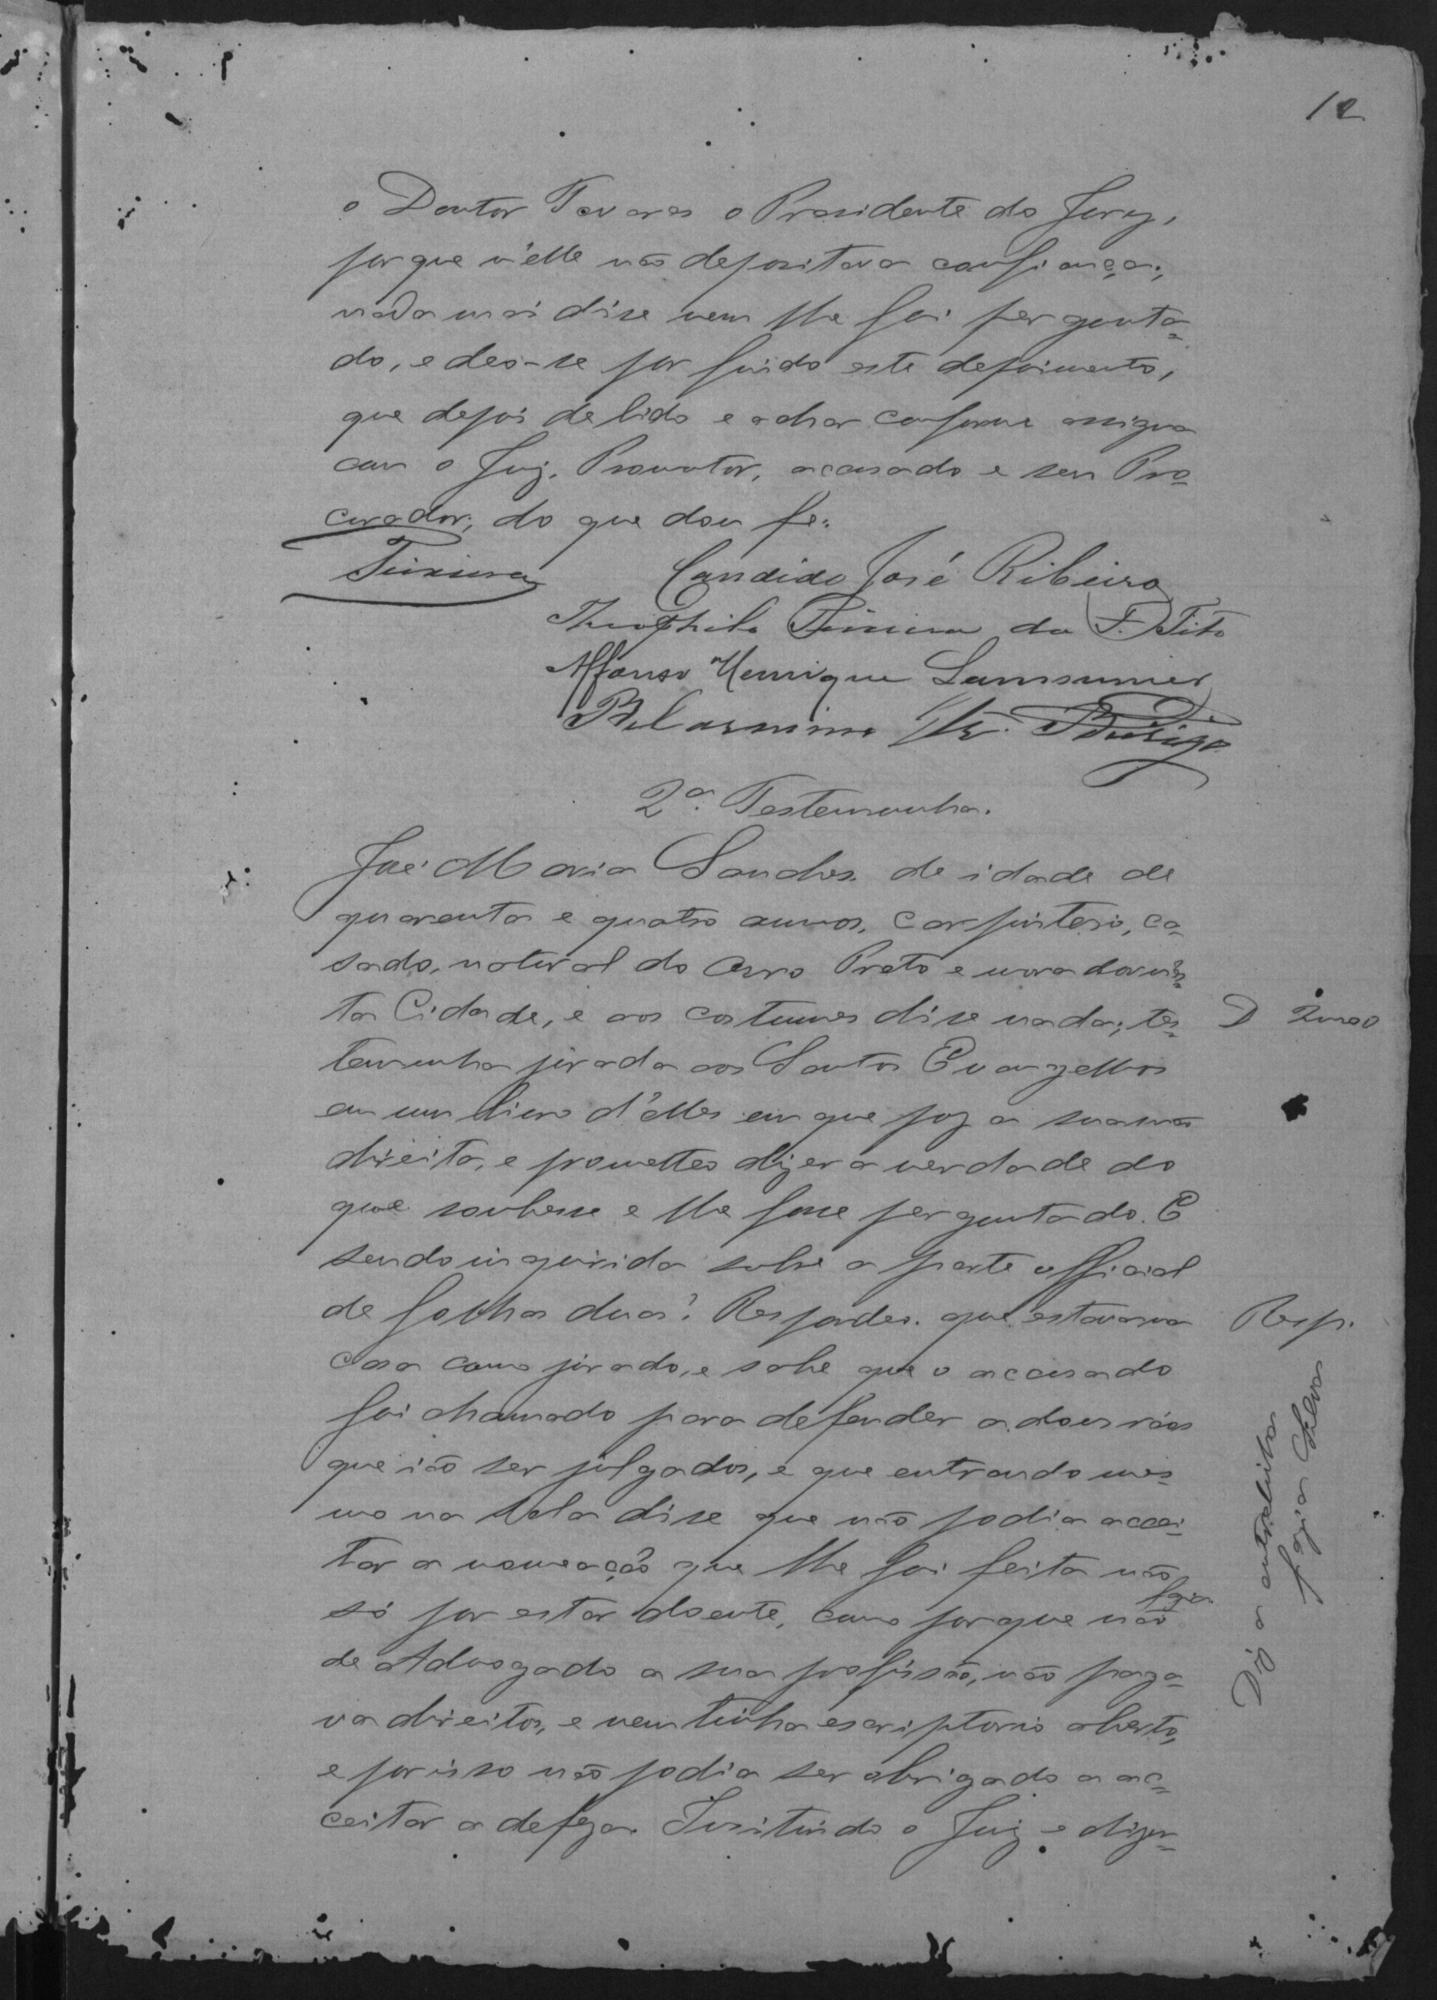 12
o Doutor Tavares o Presidente do Jury,
porque n'elle não depositava confiança;
nada mais disse nem lhe foi pergunta-
do, e deo-se por findo este depoimento,
que depois de lido e achar conforme assigna
com o Juiz, Promotor, accusado e seu Pro-
curador; do que dou fe.
Teixeira
Candido José Ribeiro
Theophilo Teixeira da F.
Affonso Henrique
2ª Testemunha.
José Maria Sanches de idade de
quarenta e quatro annos, Carpinteiro, ca-
sado, natural do Ouro Preto e morador nes-
ta Cidade, e aos costumes disse nada; tes-
temunha jurada aos Santos Evangelhos
em um livro d'elles em que poz a sua mão
direita, e prometteo dizer a verdade do
que soubesse e lhe fosse perguntado. E
sendo inquirida sobre a parte official
de folha duas? Respondeo que estava na
casa como jurado, e sabe que o accusado
foi chamado para defender a dous réos
que ião ser julgados, e que entrando mes-
mo na sala disse que não podia accei-
tar a nomeação que lhe foi feita não
só por estar doente, como porque não fazia
de Advogado a sua profissão, não paga-
va direitos, e nem tinha escriptorio aberto,
e por isso não podia ser obrigado a ac-
ceitar a defeza. Insistindo o Juiz e dizen-
D
Resp.
Diz a entrelinha
fazia